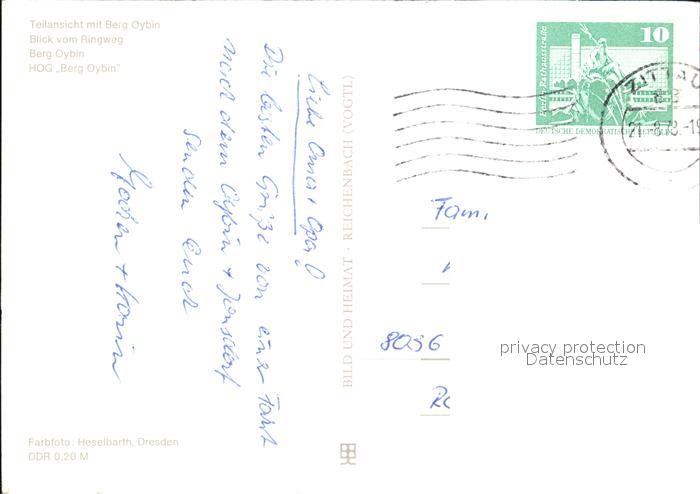 Teilansicht mit Berg Oybin
Blick vom Ringweg
Berg Oybin
HOG „Berg Oybin"
Liebe Oma + Opa!
Die besten Grüße von einer Fahrt
nach dem Oybin + Jonsdorf
senden Euch
BILD UND HEIMAT · REICHENBACH (VOGTL)
10
Berlin, Rathausstraße
DEUTSCHE DEMOKRATISCHE REPUBLIK
ZITTAU
Fam.
privacy protection
Datenschutz
Farbfoto: Heselbarth, Dresden
DDR 0,20 M